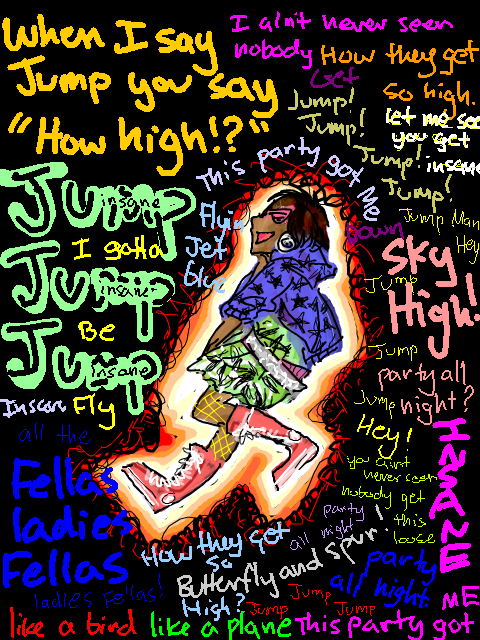 When I say
Jump you say
"How high!?"
I ain't never seen
nobody How they get
so high.
Get
Jump!
Jump!
Jump!
Jump!
let me see
you get
insane
This party got me
Jump
insane
I gotta
Jump
insane
Be
Jump
insane
Insane Fly
all the
Fellas
ladies
Fellas
ladies Fellas!
Flyin
Jet
blue
down
Jump Man
Hey
Sky
High!
Jump
Jump
party all
night?
Jump
Hey!
you ain't
never seen
nobody get
this
loose
INSANE
party
all night
How they get
so
High?
Butterfly and spur!
party
all night
Jump
Jump
Jump
ME
like a bird like a plane This party got